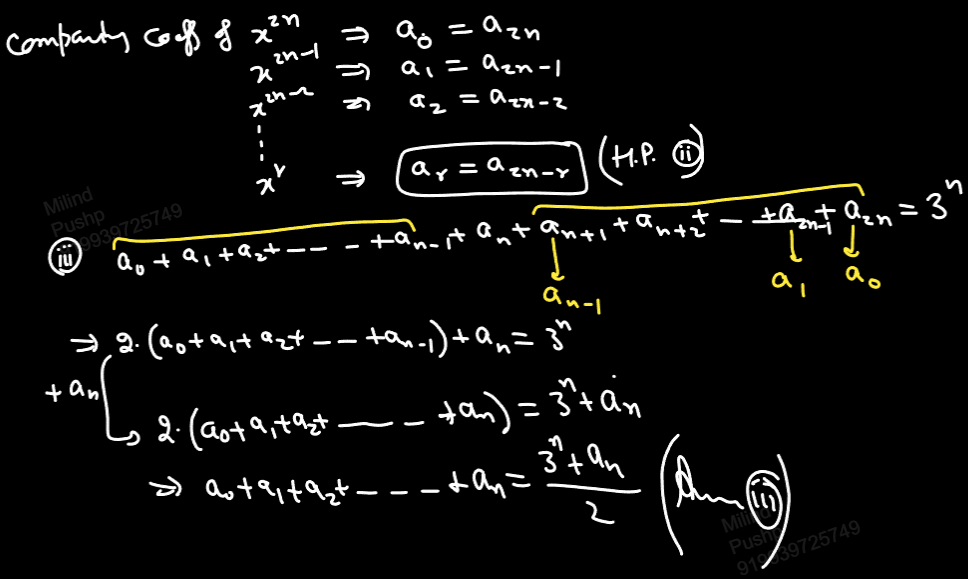 Comparing coeff of x^{2n} ⇒ a_0 = a_{2n}
x^{2n-1} ⇒ a_1 = a_{2n-1}
x^{2n-2} ⇒ a_2 = a_{2n-2}
x^r ⇒ a_r = a_{2n-r} (H.P. (ii))
Milind
Pushp
(iii) a_0 + a_1 + a_2 + --- - + a_{n-1} + a_n + a_{n+1} + a_{n+2} + - --- + a_{2n-1} + a_{2n} = 3^n
a_{n-1} a_1 a_0
⇒ 2·(a_0 + a_1 + a_2 + --- + a_{n-1}) + a_n = 3^n
+ a_n
2·(a_0 + a_1 + a_2 + ---- - + a_n) = 3^n + a_n
⇒ a_0 + a_1 + a_2 + - - - - + a_n = \frac{3^n + a_n}{2} (Ans (iii))
Milind
Pushp
919939725749